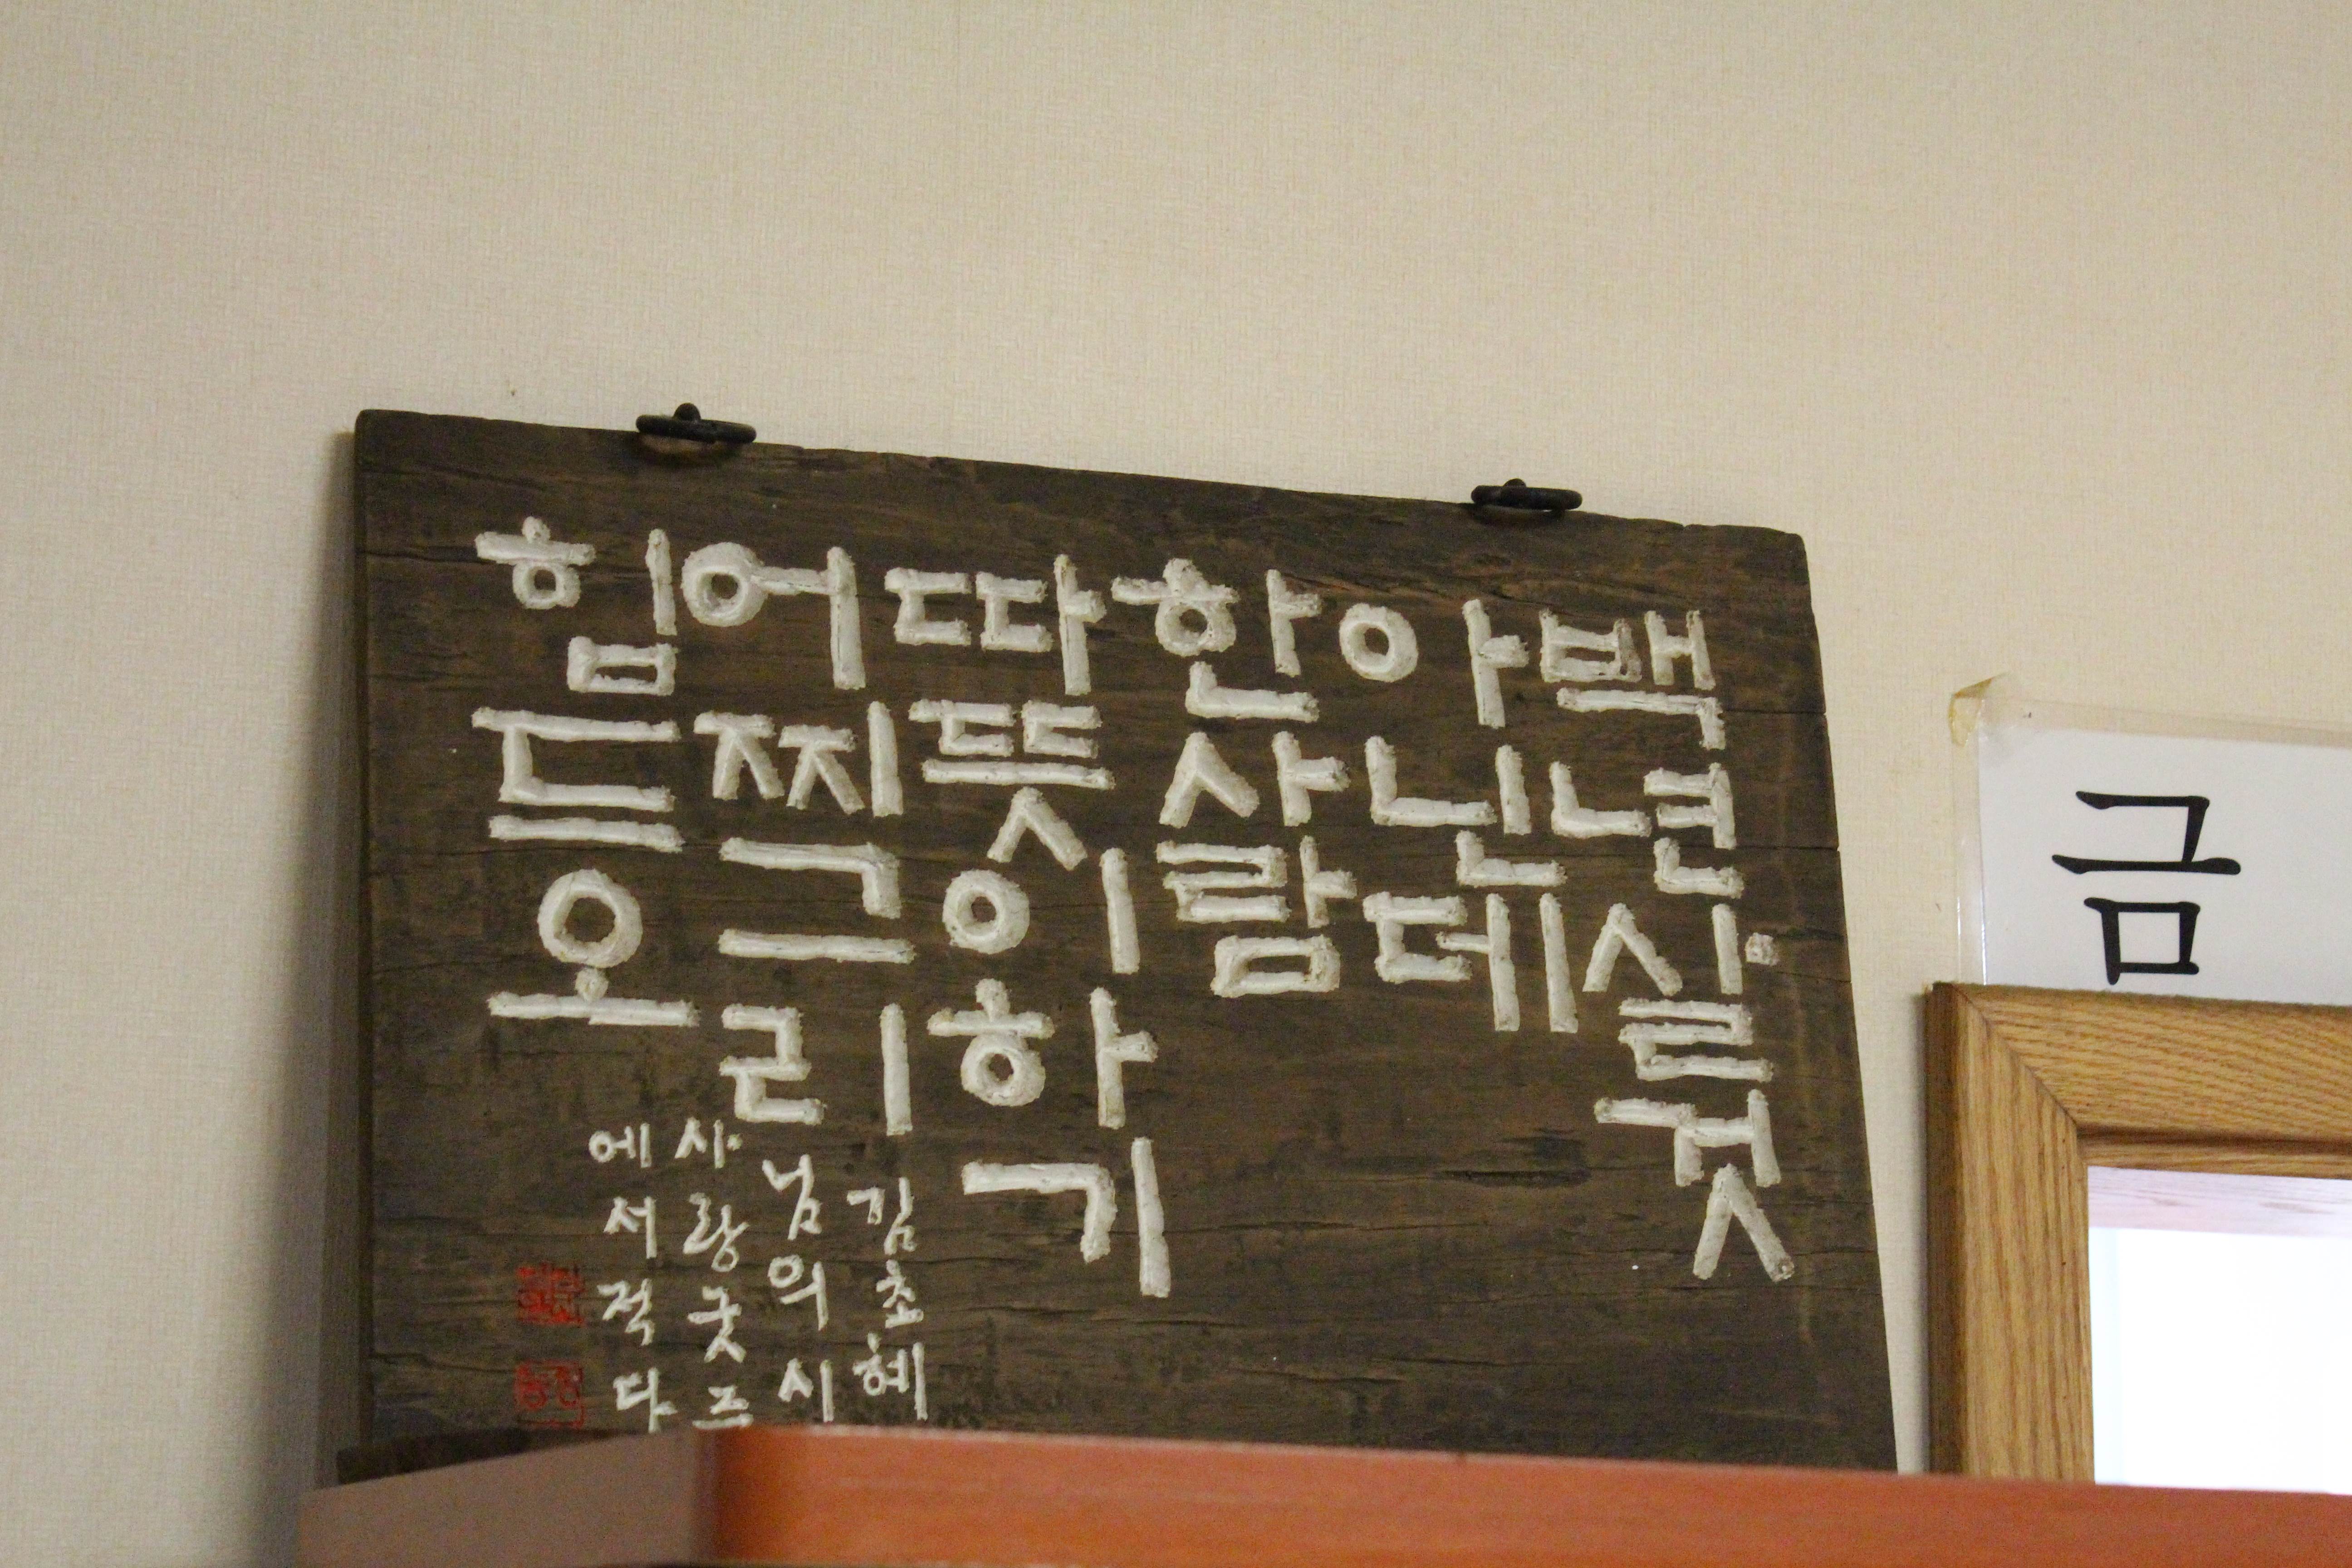 백년살것
아닌데
한사람
따뜻이하기
어찌그리
힘드오
김초혜
님의시
사랑굿중
에서적다
금